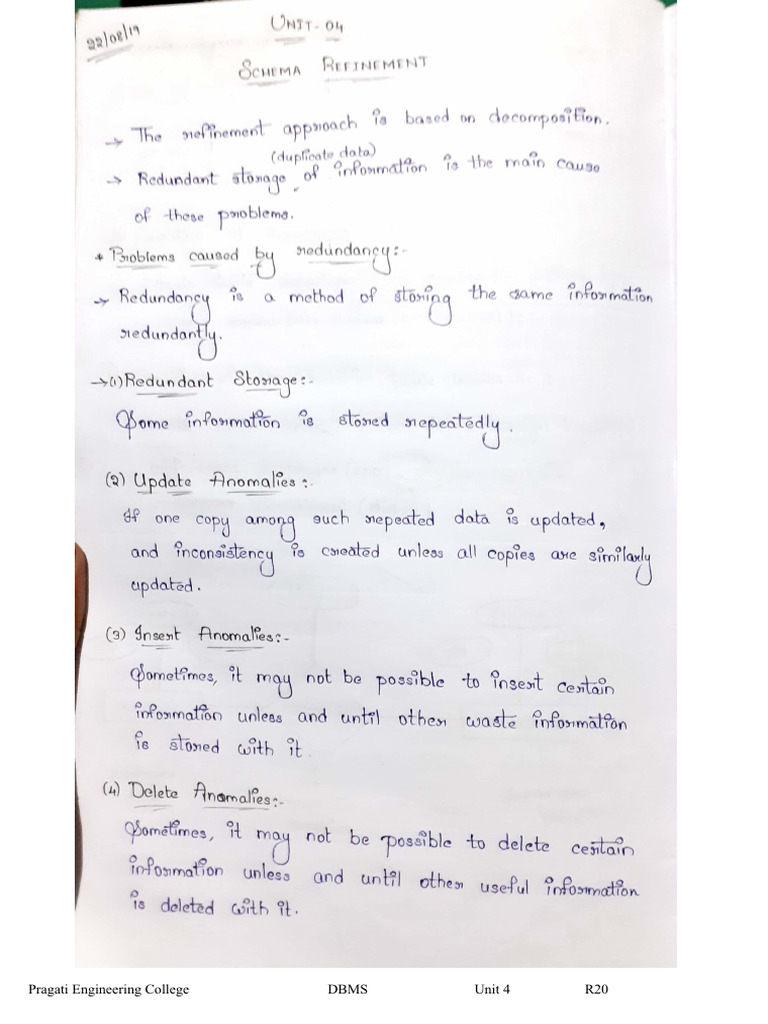 22/08/19
UNIT-04
SCHEMA REFINEMENT
→ The refinement approach is based on decomposition.
(duplicate data)
→ Redundant storage of information is the main cause
of these problems.
* Problems caused by redundancy:-
→ Redundancy is a method of storing the same information
redundantly.
→(1) Redundant Storage:-
Some information is stored repeatedly.
(2) Update Anomalies:-
If one copy among such repeated data is updated,
and inconsistency is created unless all copies are similarly
updated.
(3) Insert Anomalies:-
Sometimes, it may not be possible to insert certain
information unless and until other waste information
is stored with it.
(4) Delete Anomalies:-
Sometimes, it may not be possible to delete certain
information unless and until other useful information
is deleted with it.
Pragati Engineering College DBMS Unit 4 R20